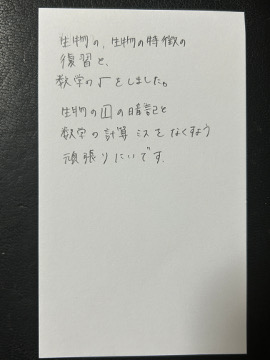 生物の、生物の特徴の
復習と、
数学の√をしました。
生物の□の暗記と
数学の計算ミスをなくすよう
頑張りたいです。